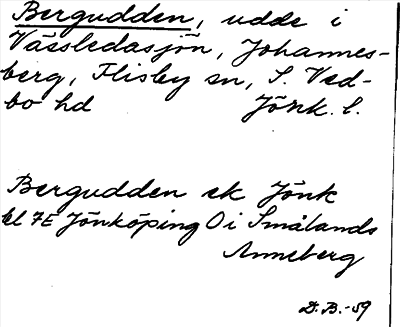 Bergudden, udde i
Vässledasjön, Johannes-
berg, Flisby sn, S. Ved-
bo hd Jönk. l.
Bergudden ek Jönk
bl 7E Jönköping O i Smålands
Anneberg
D.B.-59